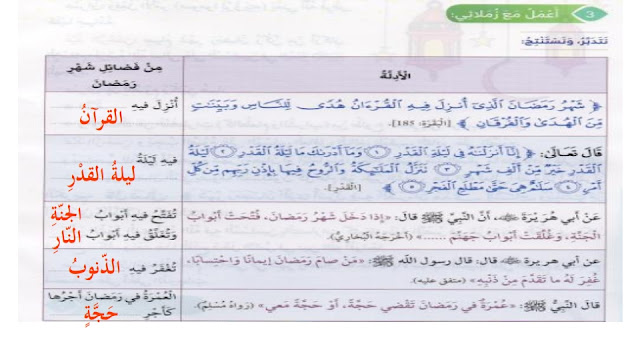 3 أَعْمَلُ مَعَ زُمَلائِي:
نَتَدَبَّرُ، وَنَسْتَنْتِجُ:
الْأَدِلَّةُ
مِنْ فَضَائِلِ شَهْرِ
رَمَضَانَ
﴿ شَهْرُ رَمَضَانَ الَّذِي أُنزِلَ فِيهِ الْقُرْءَانُ هُدًى لِّلنَّاسِ وَبَيِّنَاتٍ
مِّنَ الْهُدَى وَالْفُرْقَانِ ﴾ [البَقَرَة: 185].
أُنْزِلَ فيهِ
القرآنُ
قَالَ تَعَالَى: ﴿ إِنَّا أَنزَلْنَاهُ فِي لَيْلَةِ الْقَدْرِ ١ وَمَا أَدْرَاكَ مَا لَيْلَةُ الْقَدْرِ ٢ لَيْلَةُ
الْقَدْرِ خَيْرٌ مِّنْ أَلْفِ شَهْرٍ ٣ تَنَزَّلُ الْمَلَائِكَةُ وَالرُّوحُ فِيهَا بِإِذْنِ رَبِّهِم مِّن كُلِّ
أَمْرٍ ٤ سَلَامٌ هِيَ حَتَّى مَطْلَعِ الْفَجْرِ ٥ ﴾ [القَدْر].
فِيهِ لَيْلَةُ
ليلةُ القدْرِ
عَنْ أَبِي هُرَيْرَةَ ﷺ، أَنَّ النَّبِيَّ ﷺ قَالَ: «إِذَا دَخَلَ شَهْرُ رَمَضَانَ، فُتِّحَتْ أَبْوَابُ
الْجَنَّةِ، وَغُلِّقَتْ أَبْوَابُ جَهَنَّمَ ......» (أَخْرَجَهُ الْبُخَارِيُّ).
تُفْتَحُ فيهِ أَبْوَابُ الجَنّةِ
وَتُغْلَقُ فيهِ أَبْوَابُ النّارِ
عَن أبي هريرة قال: قال رسول الله ﷺ: «مَنْ صَامَ رَمَضَانَ إِيمَانًا وَاحْتِسَابًا،
غُفِرَ لَهُ مَا تَقَدَّمَ مِنْ ذَنْبِهِ» (متفق عليه).
تُغْفَرُ فيهِ الذّنوبُ
قَالَ النَّبِيُّ ﷺ: «عُمْرَةٌ فِي رَمَضَانَ تَقْضِي حَجَّةً، أَوْ حَجَّةً مَعِي» (رَوَاهُ مُسْلِمٌ).
الْعُمْرَةُ في رَمَضَانَ أَجْرُها
كَأَجْرِ حَجَّةٍ